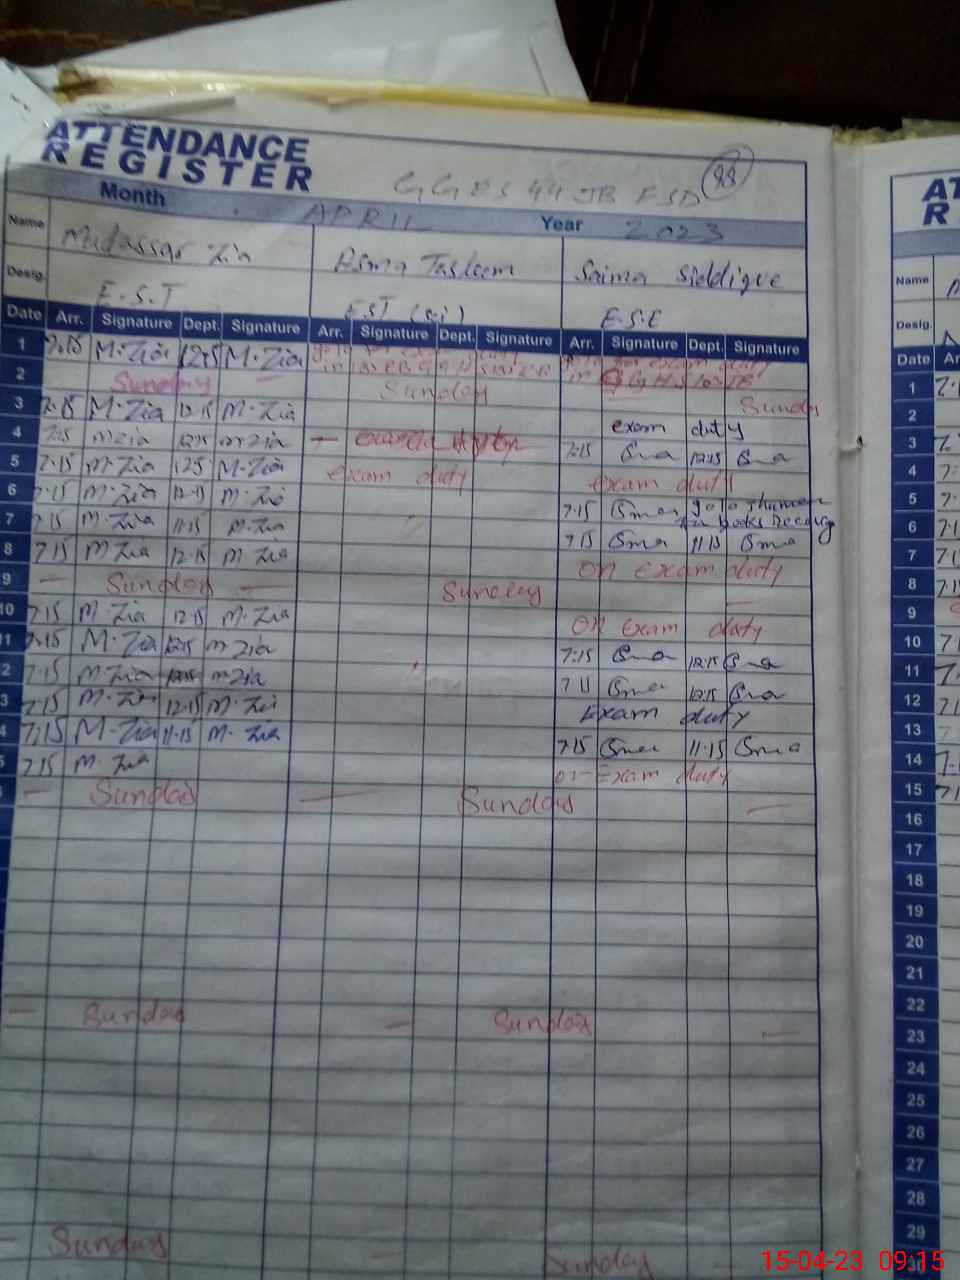 ATTENDANCE
REGISTER
GGES 44 JB FSD 98
Month APRIL Year 2023
Name Mudassar Zia Asma Tasleem Saima Siddique
Desig. E.S.T EST (Sci) E.S.E
Date Arr. Signature Dept. Signature Arr. Signature Dept. Signature Arr. Signature Dept. Signature
1 7.15 M.Zia 12:15 M.Zia for exam duty
2 Sunday Sunday Sunday
3 7.15 M.Zia 12.15 M.Zia exam duty
4 7:15 mzia 12:15 mzia exam duty 7:15 12:15
5 7.15 M.Zia 12:5 M.Zia exam duty exam duty
6 7.15 M.Zia 12-15 M.Zia 7.15 Sma go to
for books
7 7.15 M.Zia 11.15 M.Zia 7.15 Sma 11.15 Sma
8 7.15 M Zia 12.15 M Zia on exam duty
9 Sunday Sunday
10 7.15 M.Zia 12.15 M.Zia on exam duty
11 7.15 M.Zia 12:15 m zia 7:15 12:15
2 7.15 M.Zia 12:15 m zia 7 15 Sma 12:15
3 7.15 M.Zia 12.15 M.Zia Exam duty
4 7.15 M.Zia 11.15 M.Zia 7.15 Sma 11.15 Sma
5 7.15 M.Zia on Exam duty
Sunday Sunday
Sunday Sunday
Sunday Sunday
AT
R
Name
Desig.
Date Ar
1
2
3
4
5
6
7
8
9
10
11
12
13
14
15
16
17
18
19
20
21
22
23
24
25
26
27
28
29
30
15-04-23 09:15